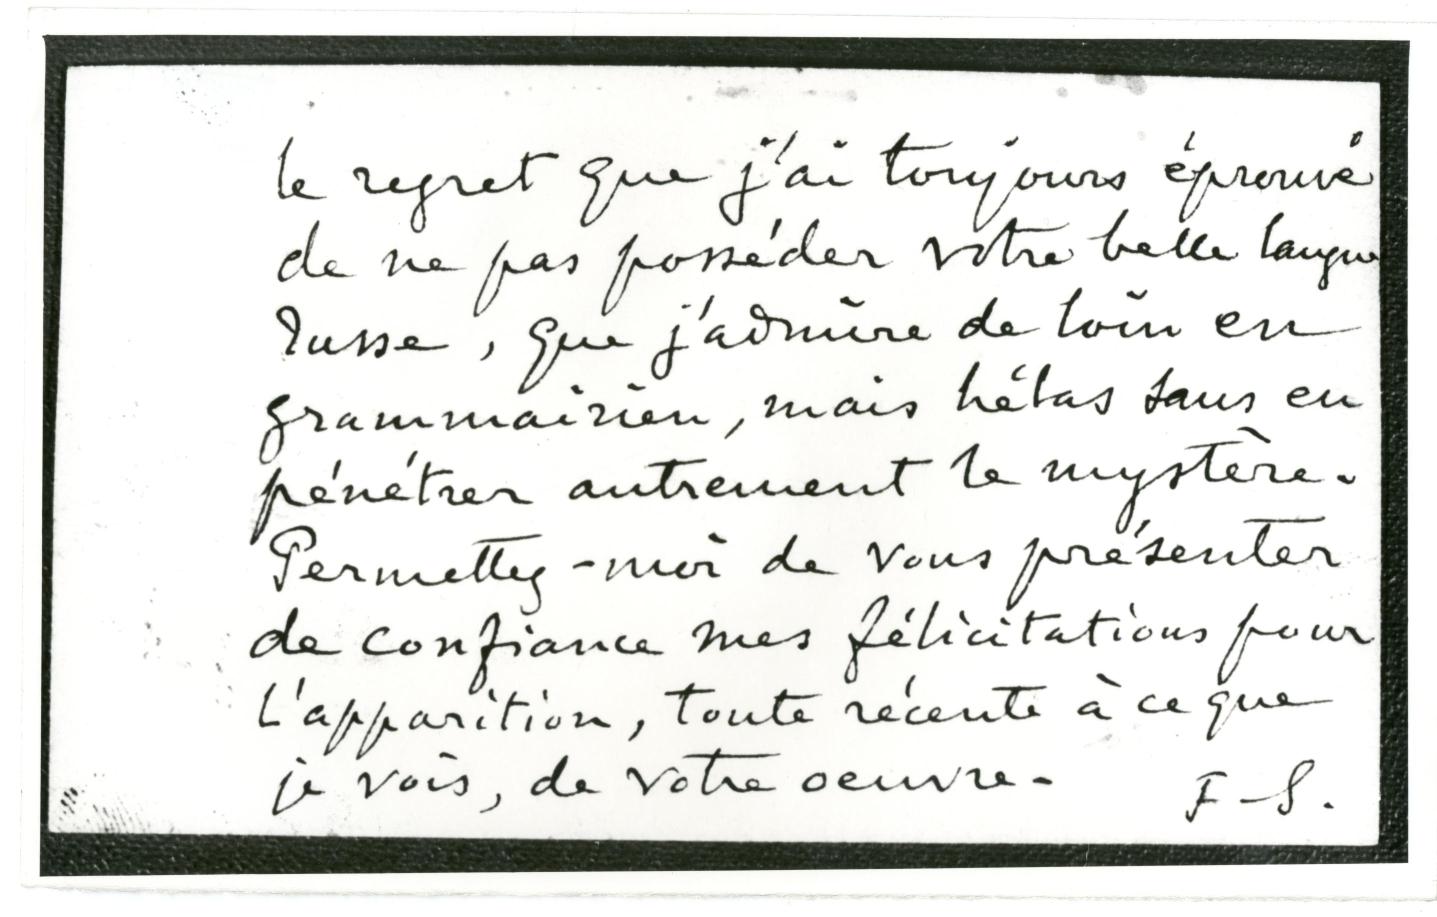 le regret que j'ai toujours éprouvé
de ne pas posséder votre belle langue
russe, que j'admire de loin en
grammairien, mais hélas sans en
pénétrer autrement le mystère.
Permettez-moi de vous présenter
de confiance mes félicitations pour
l'apparition, toute récente à ce que
je vois, de votre oeuvre.
F-S.